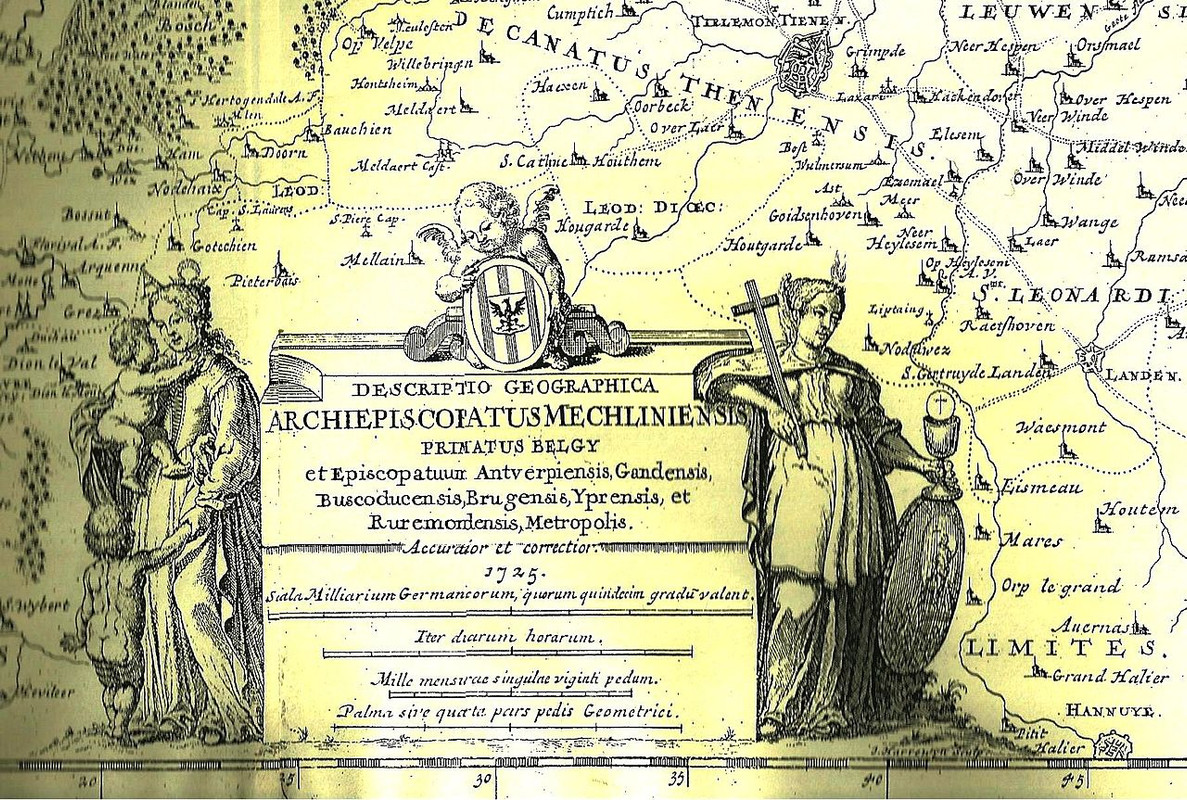 Bosch
DECANATUS THENENSIS.
Cumptich
TIRLEMONT TIENEN.
LEUWEN
Op Velpe
Willebringen
Grimpde
Neer Hespen
Hontsheim
Haexen
Oorbeck
Meldaert
Over Laer
Hackendorf
Over Hespen
Neer Winde
Bauchien
Elesem
Ham
Doorn
Meldaert Cast.
S. Catline
Houthem
Best
Wulmersum
Middel Winde
Nodehaix
LEOD:
Ast
Ezemael
Over Winde
Bossut
Cap. S. Laurens
S. Piere Cap.
LEOD: DIŒC:
Goidsenhoven
Meer
Wange
Florival A.F.
Gotechien
Hougarde
Houtgarde
Neer Heylesem
Laer
Mellain
Op Heylesem
A.V.
Arquenn
Pieterbais
Liptaing
S. LEONARDI
Raetshoven
Grez
Noduwez
S. Gertruyde Landen
LANDEN.
Dion le Val
DESCRIPTIO GEOGRAPHICA
ARCHIEPISCOPATUS MECHLINIENSIS
PRIMATUS BELGY
et Episcopatuum Antverpiensis, Gandensis,
Buscoducensis, Brugensis, Yprensis, et
Ruremondensis, Metropolis.
Accuratior et correctior.
1725.
Scala Milliarium Germanicorum, quorum quindecim gradu valent.
Iter duarum horarum.
Mille mensurae singulae viginti pedum.
Palma sive quarta pars pedis Geometrici.
Waesmont
Eismeau
Houtem
Mares
Orp le grand
S. Wybert
Auernas
LIMITES.
Grand Halier
HANNUYE.
Petit Halier
20
25
30
35
40
45